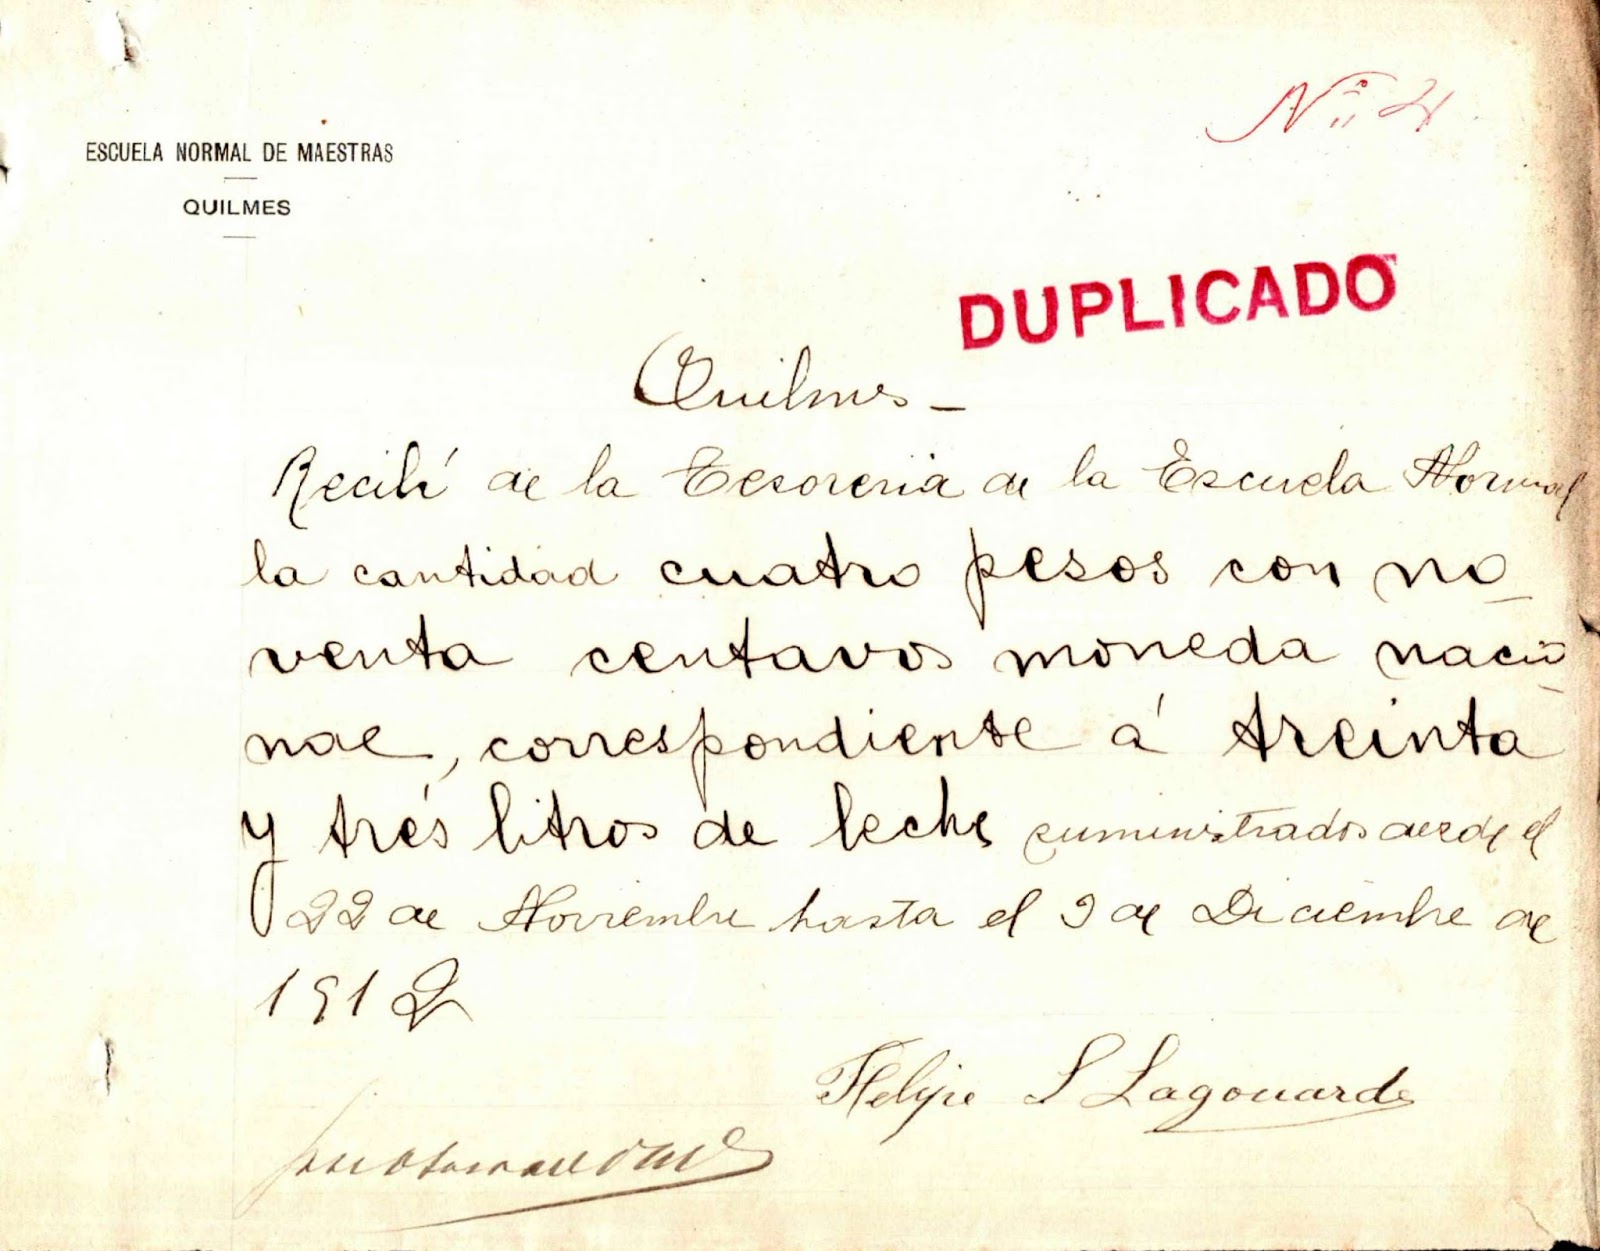 Nº 4
ESCUELA NORMAL DE MAESTRAS
QUILMES
DUPLICADO
Quilmes –
Recibí de la Tesoreria de la Escuela Normal
la cantidad cuatro pesos con no
venta centavos moneda nacio
nal, correspondiente á treinta
y trés litros de leche suministrados desde el
22 de Noviembre hasta el 9 de Diciembre de
1912
Felipe S Lagouarde